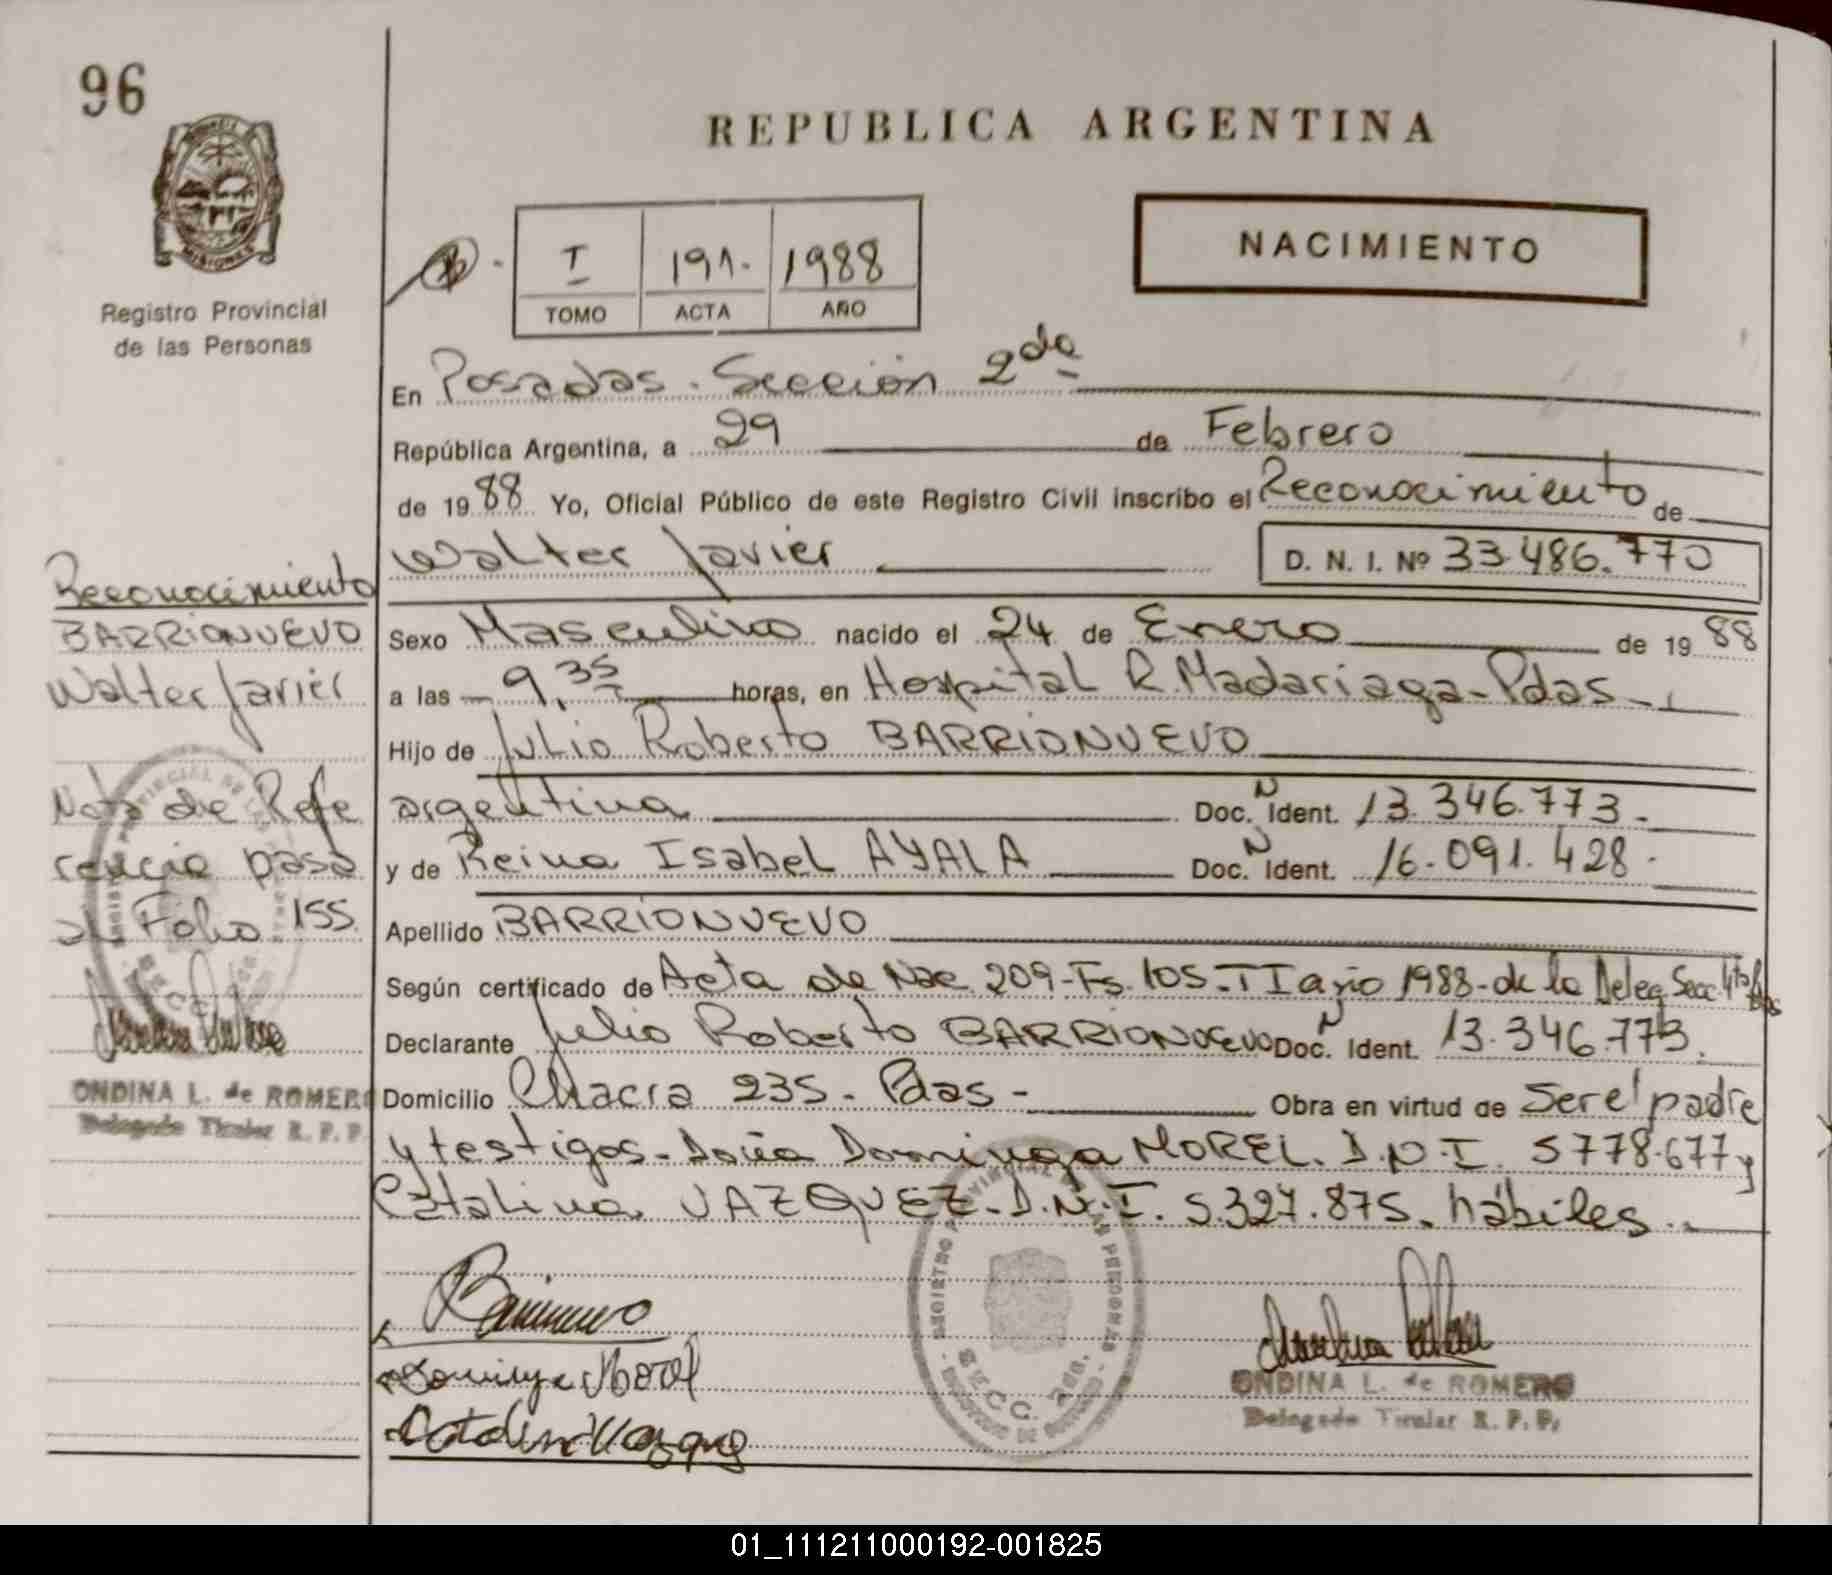 96
REPUBLICA ARGENTINA
MISIONES
Registro Provincial
de las Personas
I 191. 1988
TOMO ACTA AÑO
NACIMIENTO
En Posadas. Sección 2da
República Argentina, a 29 de Febrero
de 1988 Yo, Oficial Público de este Registro Civil inscribo el Reconocimiento de
Walter Javier D. N. I. Nº 33.486.770
Sexo Masculino nacido el 24 de Enero de 1988
a las 9,35 horas, en Hospital R. Madariaga-Pdas-
Hijo de Julio Roberto BARRIONUEVO
argentina Doc. N Ident. 13.346.773.-
y de Reina Isabel AYALA Doc. N Ident. 16.091.428.
Apellido BARRIONUEVO
Según certificado de Acta de Nac. 209-Fs.105-T I año 1988-de la Deleg Secc. 4ta Pdas
Declarante Julio Roberto BARRIONUEVO Doc. N Ident. 13.346.773.
Domicilio Chacra 235. Pdas- Obra en virtud de Ser el padre
y testigos-Doña Dominga MOREL. D.N.I. 5778.677 y
Catalina VAZQUEZ-D.N.I. 5.327.875. hábiles.-
Dominga Morel
Catalina Vazquez
REGISTRO PROVINCIAL DE LAS PERSONAS
SECC. 2da.
ONDINA L. de ROMERO
Delegado Titular R. P. P.
Reconocimiento
BARRIONUEVO
Walter Javier
Nota de Refe
rencia pasa
al Folio 155.
ONDINA L. de ROMERO
Delegado Titular R. P. P.
01_111211000192-001825